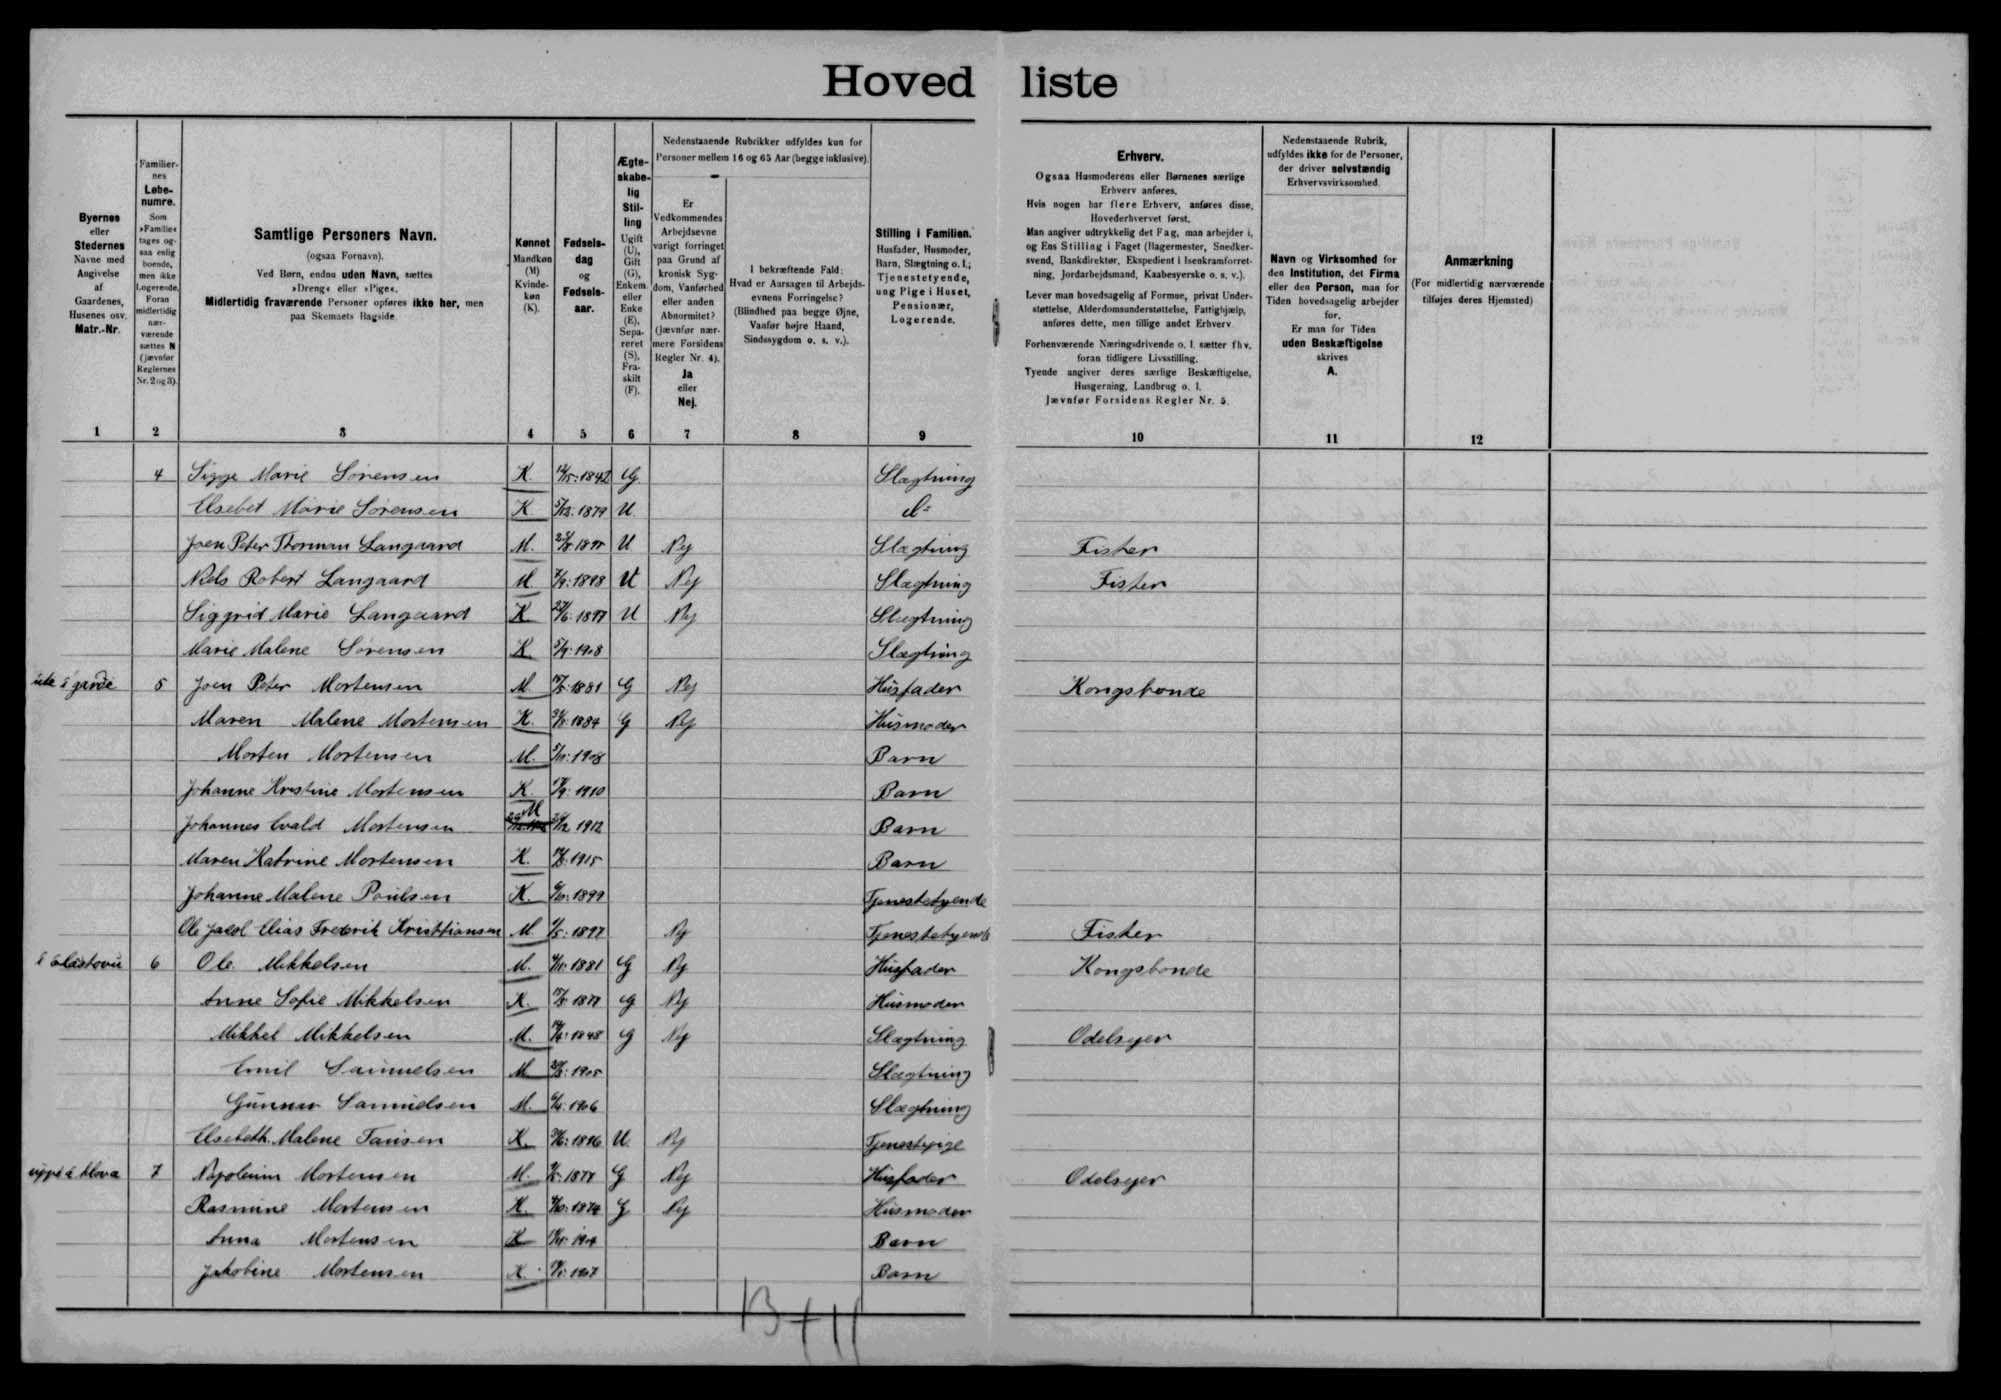 Hovedliste
Byernes
eller
Stedernes
Navne med
Angivelse
af
Gaardenes,
Husenes osv.
Matr.-Nr.
Familier-
nes
Løbe-
numre.
Som
»Familie«
tages og-
saa enlig
boende,
men ikke
Logerende.
Foran
midlertidig
nær-
værende
sættes N
(jævnfør
Reglernes
Nr. 2 og 3).
Samtlige Personers Navn.
(ogsaa Fornavn).
Ved Børn, endnu uden Navn, sættes
»Dreng« eller »Pige«.
Midlertidig fraværende Personer opføres ikke her, men
paa Skemaets Bagside.
Kønnet
Mandkøn
(M)
Kvinde-
køn
(K).
Fødsels-
dag
og
Fødsels-
aar.
Ægte-
skabe-
lig
Stil-
ling
Ugift
(U),
Gift
(G),
Enkem.
eller
Enke
(E),
Sepa-
reret
(S),
Fra-
skilt
(F).
Nedenstaaende Rubrikker udfyldes kun for
Personer mellem 16 og 65 Aar (begge inklusive).
Er
Vedkommendes
Arbejdsevne
varigt forringet
paa Grund af
kronisk Syg-
dom, Vanførhed
eller anden
Abnormitet?
(Jævnfør nær-
mere Forsidens
Regler Nr. 4).
Ja
eller
Nej.
I bekræftende Fald:
Hvad er Aarsagen til Arbejds-
evnens Forringelse?
(Blindhed paa begge Øjne,
Vanfør højre Haand,
Sindssygdom o. s. v.).
Stilling i Familien.
Husfader, Husmoder,
Barn, Slægtning o. l.;
Tjenestetyende,
ung Pige i Huset,
Pensionær,
Logerende.
Erhverv.
Ogsaa Husmoderens eller Børnenes særlige
Erhverv anføres.
Hvis nogen har flere Erhverv, anføres disse,
Hovederhvervet først.
Man angiver udtrykkelig det Fag, man arbejder i,
og Ens Stilling i Faget (Bagermester, Snedker-
svend, Bankdirektør, Ekspedient i Isenkramforret-
ning, Jordarbejdsmand, Kaabesyerske o. s. v.).
Lever man hovedsagelig af Formue, privat Under-
støttelse, Alderdomsunderstøttelse, Fattighjælp,
anføres dette, men tillige andet Erhverv.
Forhenværende Næringsdrivende o. l. sætter fhv.
foran tidligere Livsstilling.
Tyende angiver deres særlige Beskæftigelse,
Husgerning, Landbrug o. l.
Jævnfør Forsidens Regler Nr. 5.
Nedenstaaende Rubrik,
udfyldes ikke for de Personer,
der driver selvstændig
Erhvervsvirksomhed.
Navn og Virksomhed for
den Institution, det Firma
eller den Person, man for
Tiden hovedsagelig arbejder
for.
Er man for Tiden
uden Beskæftigelse
skrives
A.
Anmærkning
(For midlertidig nærværende
tilføjes deres Hjemsted)
1 2 3 4 5 6 7 8 9 10 11 12
4 Sigge Marie Sørensen K. 1842 G. Slægtning
Elsebet Marie Sørensen K 1879 U
Joen Peter Thorman Langaard M. U Nej Slægtning Fisker
Niels Robert Langaard M. 1898 U Nej Slægtning Fisker
Siggrid Marie Langaard K. U Nej Slægtning
Marie Malene Sørensen K 1908 Slægtning
5 Joen Peter Mortensen M. 1881 G Nej Husfader Kongsbonde
Maren Malene Mortensen K. 1884 G Nej Husmoder
Morten Mortensen M. 1908 Barn
Johanne Kristine Mortensen K. 1910 Barn
Johannes Evald Mortensen M 1912 Barn
Maren Katrine Mortensen K. 1915 Barn
Johanne Malene Poulsen K. 1899 Tjenestetyende
Ole Jacob Elias Frederik Kristiansen M. 1897 Nej Tjenestetyende Fisker
6 Ole Mikkelsen M. 1881 G Nej Husfader Kongsbonde
Anne Sofie Mikkelsen K. G Nej Husmoder
Mikkel Mikkelsen M. 1848 G Nej Slægtning Odelsejer
Emil Samuelsen M 1905 Slægtning
Gunnar Samuelsen M. 1906 Slægtning
Elsebeth Malene Tausen K. U. Nej Tjenestepige
7 Napoleum Mortensen M. G Nej Husfader Odelsejer
Rasmine Mortensen K. 1874 G Nej Husmoder
Anna Mortensen K 1904 Barn
Jakobine Mortensen K. 1907 Barn
13 + 11